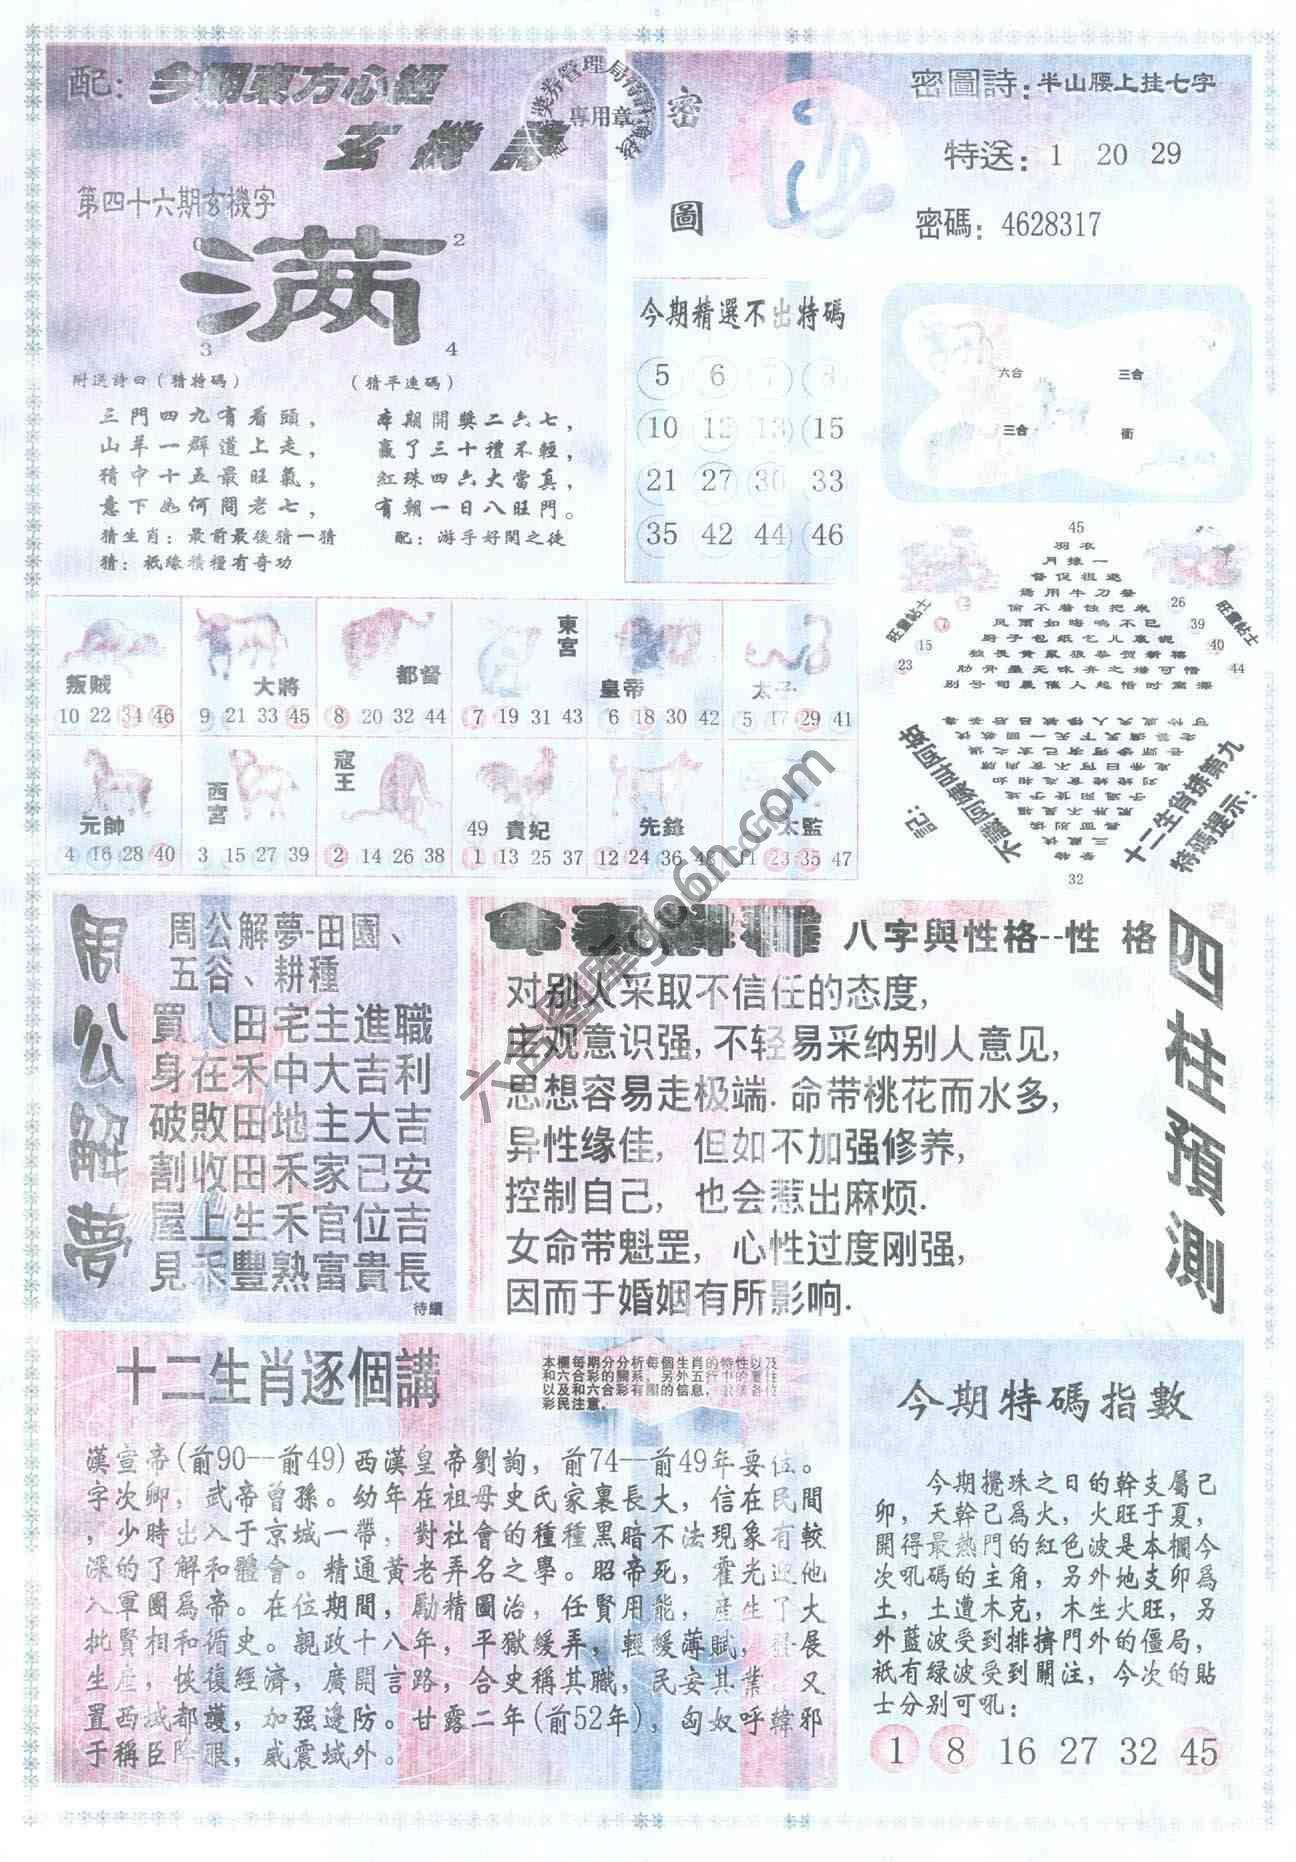 配：今期東方心經
玄機
專用章
第四十六期玄機字
满
2
3
4
附送詩曰（猜特碼）
三門四九有看頭，
山羊一群道上走，
猜中十五最旺氣，
意下如何問老七，
猜生肖：最前最後猜一猜
猜：祇緣積糧有奇功
（猜平連碼）
本期開獎二六七，
贏了三十禮不輕，
紅珠四六大當真，
有朝一日八旺門。
配：游手好閑之徒
密
圖
密圖詩：半山腰上挂七字
特送：1 20 29
密碼：4628317
今期精選不出特碼
5 6 7 8
10 12 13 15
21 27 30 33
35 42 44 46
六合
三合
三合
衝
45
羽衣
月缘一
督促祖逖
焉用牛刀
偷不着蚀把米
风雨如晦鸣不已
厨子包纸乞儿裹
独畏黄鼠狼恭贺新禧
肋骨虽无味弃之堪可惜
别号司晨催人起悟时高深
旺重帖士
旺重帖士
7
15
23
26
39
40
44
32
記：
十二生肖排第九
特碼提示：
叛賊
10 22 34 46
大將
9 21 33 45
都督
8 20 32 44
東宮
7 19 31 43
皇帝
6 18 30 42
太子
5 17 29 41
元帥
4 16 28 40
西宮
3 15 27 39
寇王
2 14 26 38
49 貴妃
1 13 25 37
先鋒
12 24 36 48
太監
11 23 35 47
周公解夢
周公解夢-田園、
五谷、耕種
買人田宅主進職
身在禾中大吉利
破敗田地主大吉
割收田禾家已安
屋上生禾官位吉
見禾豐熟富貴長
待續
八字與性格--性 格
对别人采取不信任的态度,
主观意识强, 不轻易采纳别人意见,
思想容易走极端. 命带桃花而水多,
异性缘佳, 但如不加强修养,
控制自己, 也会惹出麻烦.
女命带魁罡, 心性过度刚强,
因而于婚姻有所影响.
四柱預測
十二生肖逐個講
本欄每期分分析每個生肖的特性以及
和六合彩的關系，另外五行中的
以及和六合彩有關的信息，
彩民注意。
漢宣帝(前90--前49)西漢皇帝劉詢，前74--前49年要位。
字次卿，武帝曾孫。幼年在祖母史氏家裏長大，信在民間
，少時出入于京城一帶，對社會的種種黑暗不法現象有較
深的了解和體會。精通黃老弄名之學。昭帝死，霍光迎他
入軍國爲帝。在位期間，勵精圖治，任賢用能，産生了大
批賢相和循史。親政十八年，平獄緩弄，輕緩薄賦，發展
生産，恢復經濟，廣開言路，合史稱其職，民安其業，又
置西域都護，加强邊防。甘露二年(前52年)，匈奴呼韓邪
于稱臣降服，威震域外。
今期特碼指數
今期攪珠之日的幹支屬己
卯，天幹已爲火，火旺于夏，
開得最熱門的紅色波是本欄今
次吼碼的主角，另外地支卯爲
土，土遭木克，木生火旺，另
外藍波受到排擠門外的僵局，
祇有緑波受到關注，今次的貼
士分別可吼：
1 8 16 27 32 45
六合图库go6h.com